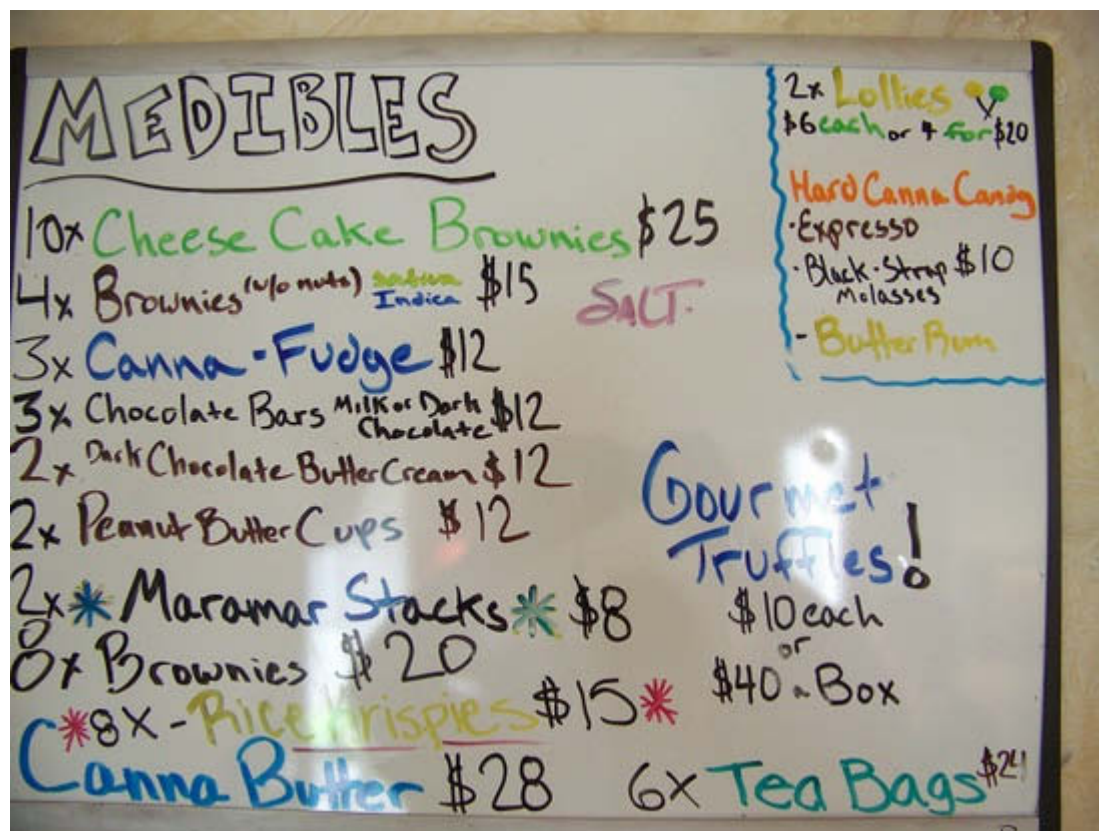 MEDIBLES
10x Cheese Cake Brownies $25
4x Brownies (w/o nuts) Sativa Indica $15
SALT.
3x Canna-Fudge $12
3x Chocolate Bars Milk or Dark Chocolate $12
2x Dark Chocolate Butter Cream $12
2x Peanut Butter Cups $12
2x Maramar Stacks $8
8x Brownies $20
8x - Rice Krispies $15
Canna Butter $28
2x Lollies
$6 each or 4 for $20
Hard Canna Candy
·Expresso
·Black-Strap Molasses $10
- Butter Rum
Gourmet
Truffles!
$10 each
or
$40 a Box
6x Tea Bags